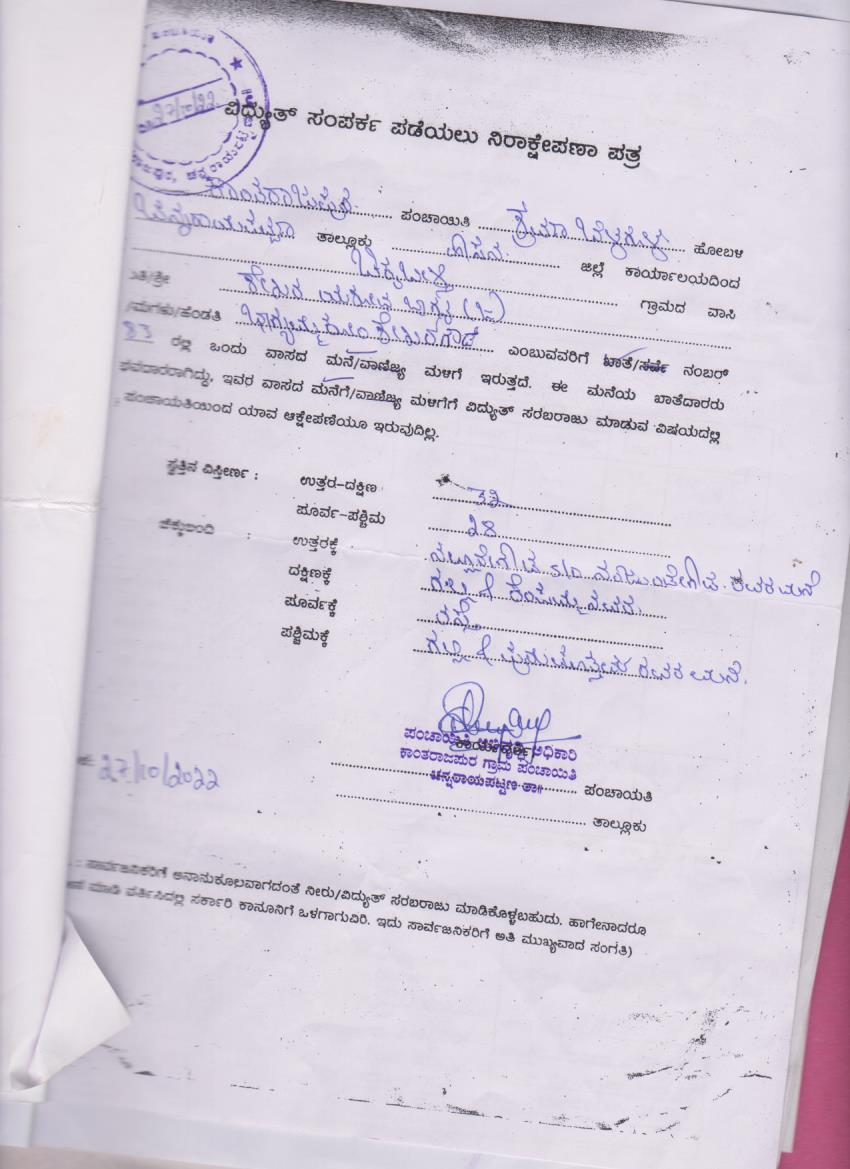 27/10/22
ವಿದ್ಯುತ್ ಸಂಪರ್ಕ ಪಡೆಯಲು ನಿರಾಕ್ಷೇಪಣಾ ಪತ್ರ
ಕಾಂತರಾಜಪುರ ಪಂಚಾಯಿತಿ ಶ್ರವಣಬೆಳಗೊಳ ಹೋಬಳಿ
ಚನ್ನರಾಯಪಟ್ಟಣ ತಾಲ್ಲೂಕು ಹಾಸನ ಜಿಲ್ಲೆ ಕಾರ್ಯಾಲಯದಿಂದ
ಗ್ರಾಮದ ವಾಸಿ
/ಮಗಳು/ಹೆಂಡತಿ ಎಂಬುವವರಿಗೆ ಖಾತೆ/ಸರ್ವೆ ನಂಬರ್
83 ರಲ್ಲಿ ಒಂದು ವಾಸದ ಮನೆ/ವಾಣಿಜ್ಯ ಮಳಿಗೆ ಇರುತ್ತದೆ. ಈ ಮನೆಯ ಖಾತೆದಾರರು
ಇವರ ವಾಸದ ಮನೆಗೆ/ವಾಣಿಜ್ಯ ಮಳಿಗೆಗೆ ವಿದ್ಯುತ್ ಸರಬರಾಜು ಮಾಡುವ ವಿಷಯದಲ್ಲಿ
ಪಂಚಾಯತಿಯಿಂದ ಯಾವ ಆಕ್ಷೇಪಣೆಯೂ ಇರುವುದಿಲ್ಲ.
ಸ್ವತ್ತಿನ ವಿಸ್ತೀರ್ಣ : ಉತ್ತರ-ದಕ್ಷಿಣ
ಪೂರ್ವ-ಪಶ್ಚಿಮ 28
ಚೆಕ್ಕುಬಂದಿ : ಉತ್ತರಕ್ಕೆ S/o
ದಕ್ಷಿಣಕ್ಕೆ ಗಲ್ಲಿ &
ಪೂರ್ವಕ್ಕೆ ರಸ್ತೆ
ಪಶ್ಚಿಮಕ್ಕೆ ಗಲ್ಲಿ & ಪುರುಷೋತ್ತಮ ರವರ ಮನೆ.
ಕಾರ್ಯದರ್ಶಿ
ಪಂಚಾಯಿತಿ ಅಭಿವೃದ್ಧಿ ಅಧಿಕಾರಿ
ಕಾಂತರಾಜಪುರ ಗ್ರಾಮ ಪಂಚಾಯಿತಿ
ಚನ್ನರಾಯಪಟ್ಟಣ ತಾ॥
27/10/2022
ಪಂಚಾಯತಿ
ತಾಲ್ಲೂಕು
: ಸಾರ್ವಜನಿಕರಿಗೆ ಅನಾನುಕೂಲವಾಗದಂತೆ ನೀರು/ವಿದ್ಯುತ್ ಸರಬರಾಜು ಮಾಡಿಕೊಳ್ಳಬಹುದು. ಹಾಗೇನಾದರೂ
ಮಾಡಿ ವರ್ತಿಸಿದ್ದಲ್ಲಿ ಸರ್ಕಾರಿ ಕಾನೂನಿಗೆ ಒಳಗಾಗುವಿರಿ. ಇದು ಸಾರ್ವಜನಿಕರಿಗೆ ಅತಿ ಮುಖ್ಯವಾದ ಸಂಗತಿ)